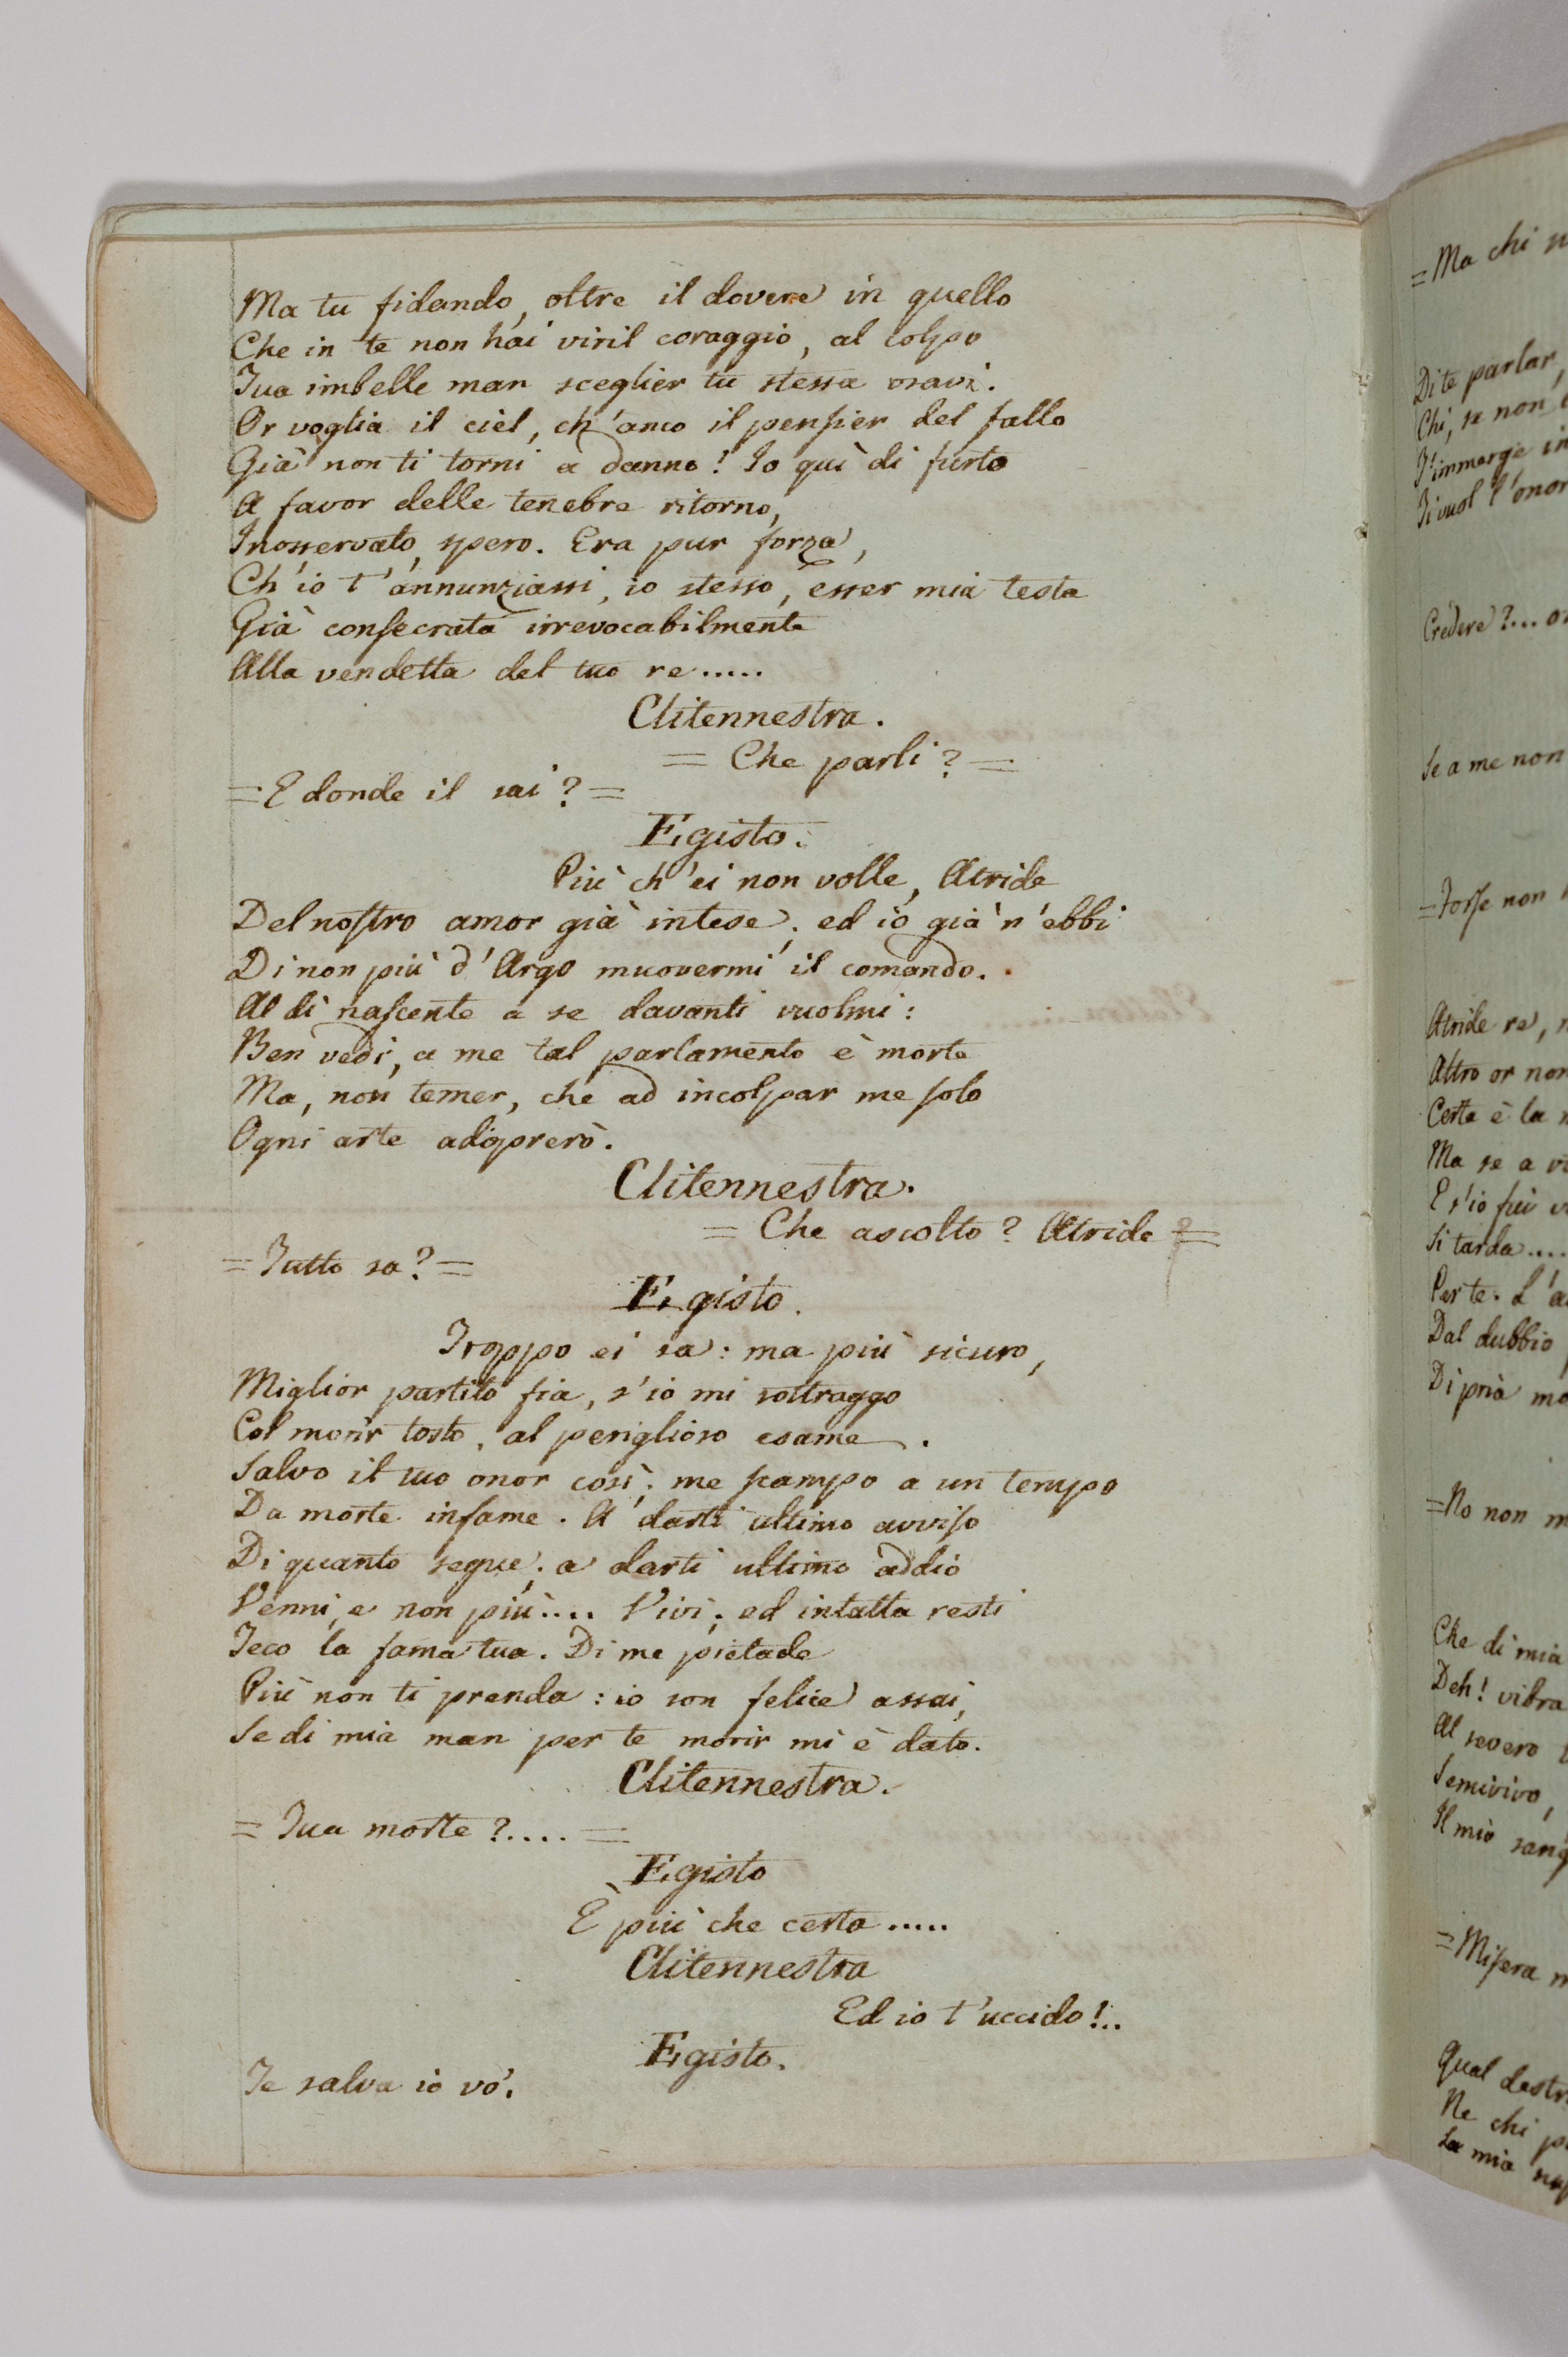 Ma tu fidando, oltre il dovere in quello
Che in te non hai viril coraggio, al colpo
Tua imbelle man sceglier tu stessa osavi.
Or voglia il ciel, ch'anco il pensier del fallo
Già non ti torni a danno! Io quì di furto
A favor delle tenebre ritorno,
Inosservato, spero. Era pur forza,
Ch'io t'annunziassi, io stesso, esser mia testa
Già consecrata irrevocabilmente
Alla vendetta del tuo re.....
Clitennestra.
= Che parli? =
= E donde il sai? =
Egisto.
Più ch'ei non volle, Atride
Del nostro amor già intese; ed io già n'ebbi
Di non più d'Argo muovermi il comando.
Al dì nascente a se davanti vuolmi:
Ben vedi, a me tal parlamento è morte
Ma, non temer, che ad incolpar me solo
Ogni arte adoprerò.
Clitennestra.
= Che ascolto? Atride =
= Tutto sa? =
Egisto.
Troppo ei sa: ma più sicuro,
Miglior partito fia, s'io mi sottraggo
Col morir tosto, al periglioso esame.
Salvo il tuo onor così; me scampo a un tempo
Da morte infame. A darti ultimo avviso
Di quanto segue; a darti ultimo addio
Venni, e non più.... Vivi; ed intatta resti
Teco la fama tua. Di me pietade
Più non ti prenda: io son felice assai,
Se di mia man per te morir mi è dato.
Clitennestra.
= Tua morte?.... =
Egisto
È più che certa.....
Clitennestra
Ed io t'uccido!..
Egisto.
Te salva io vo'.
= Ma chi
Di te parlar,
Chi, se non
T'immerge in
Ti vuol l'onor
Credere?...
Se a me non
= Forse non
Atride re,
Altro or non
Certa è la
Ma se a
E s'io fui
Si tarda....
Per te. L'a
Dal dubbio
Di pria
= No non
Che di mia
Deh! vibra
Al severo
Semivivo,
Il mio sang
= Misera
Qual destr
Ne chi
La mia